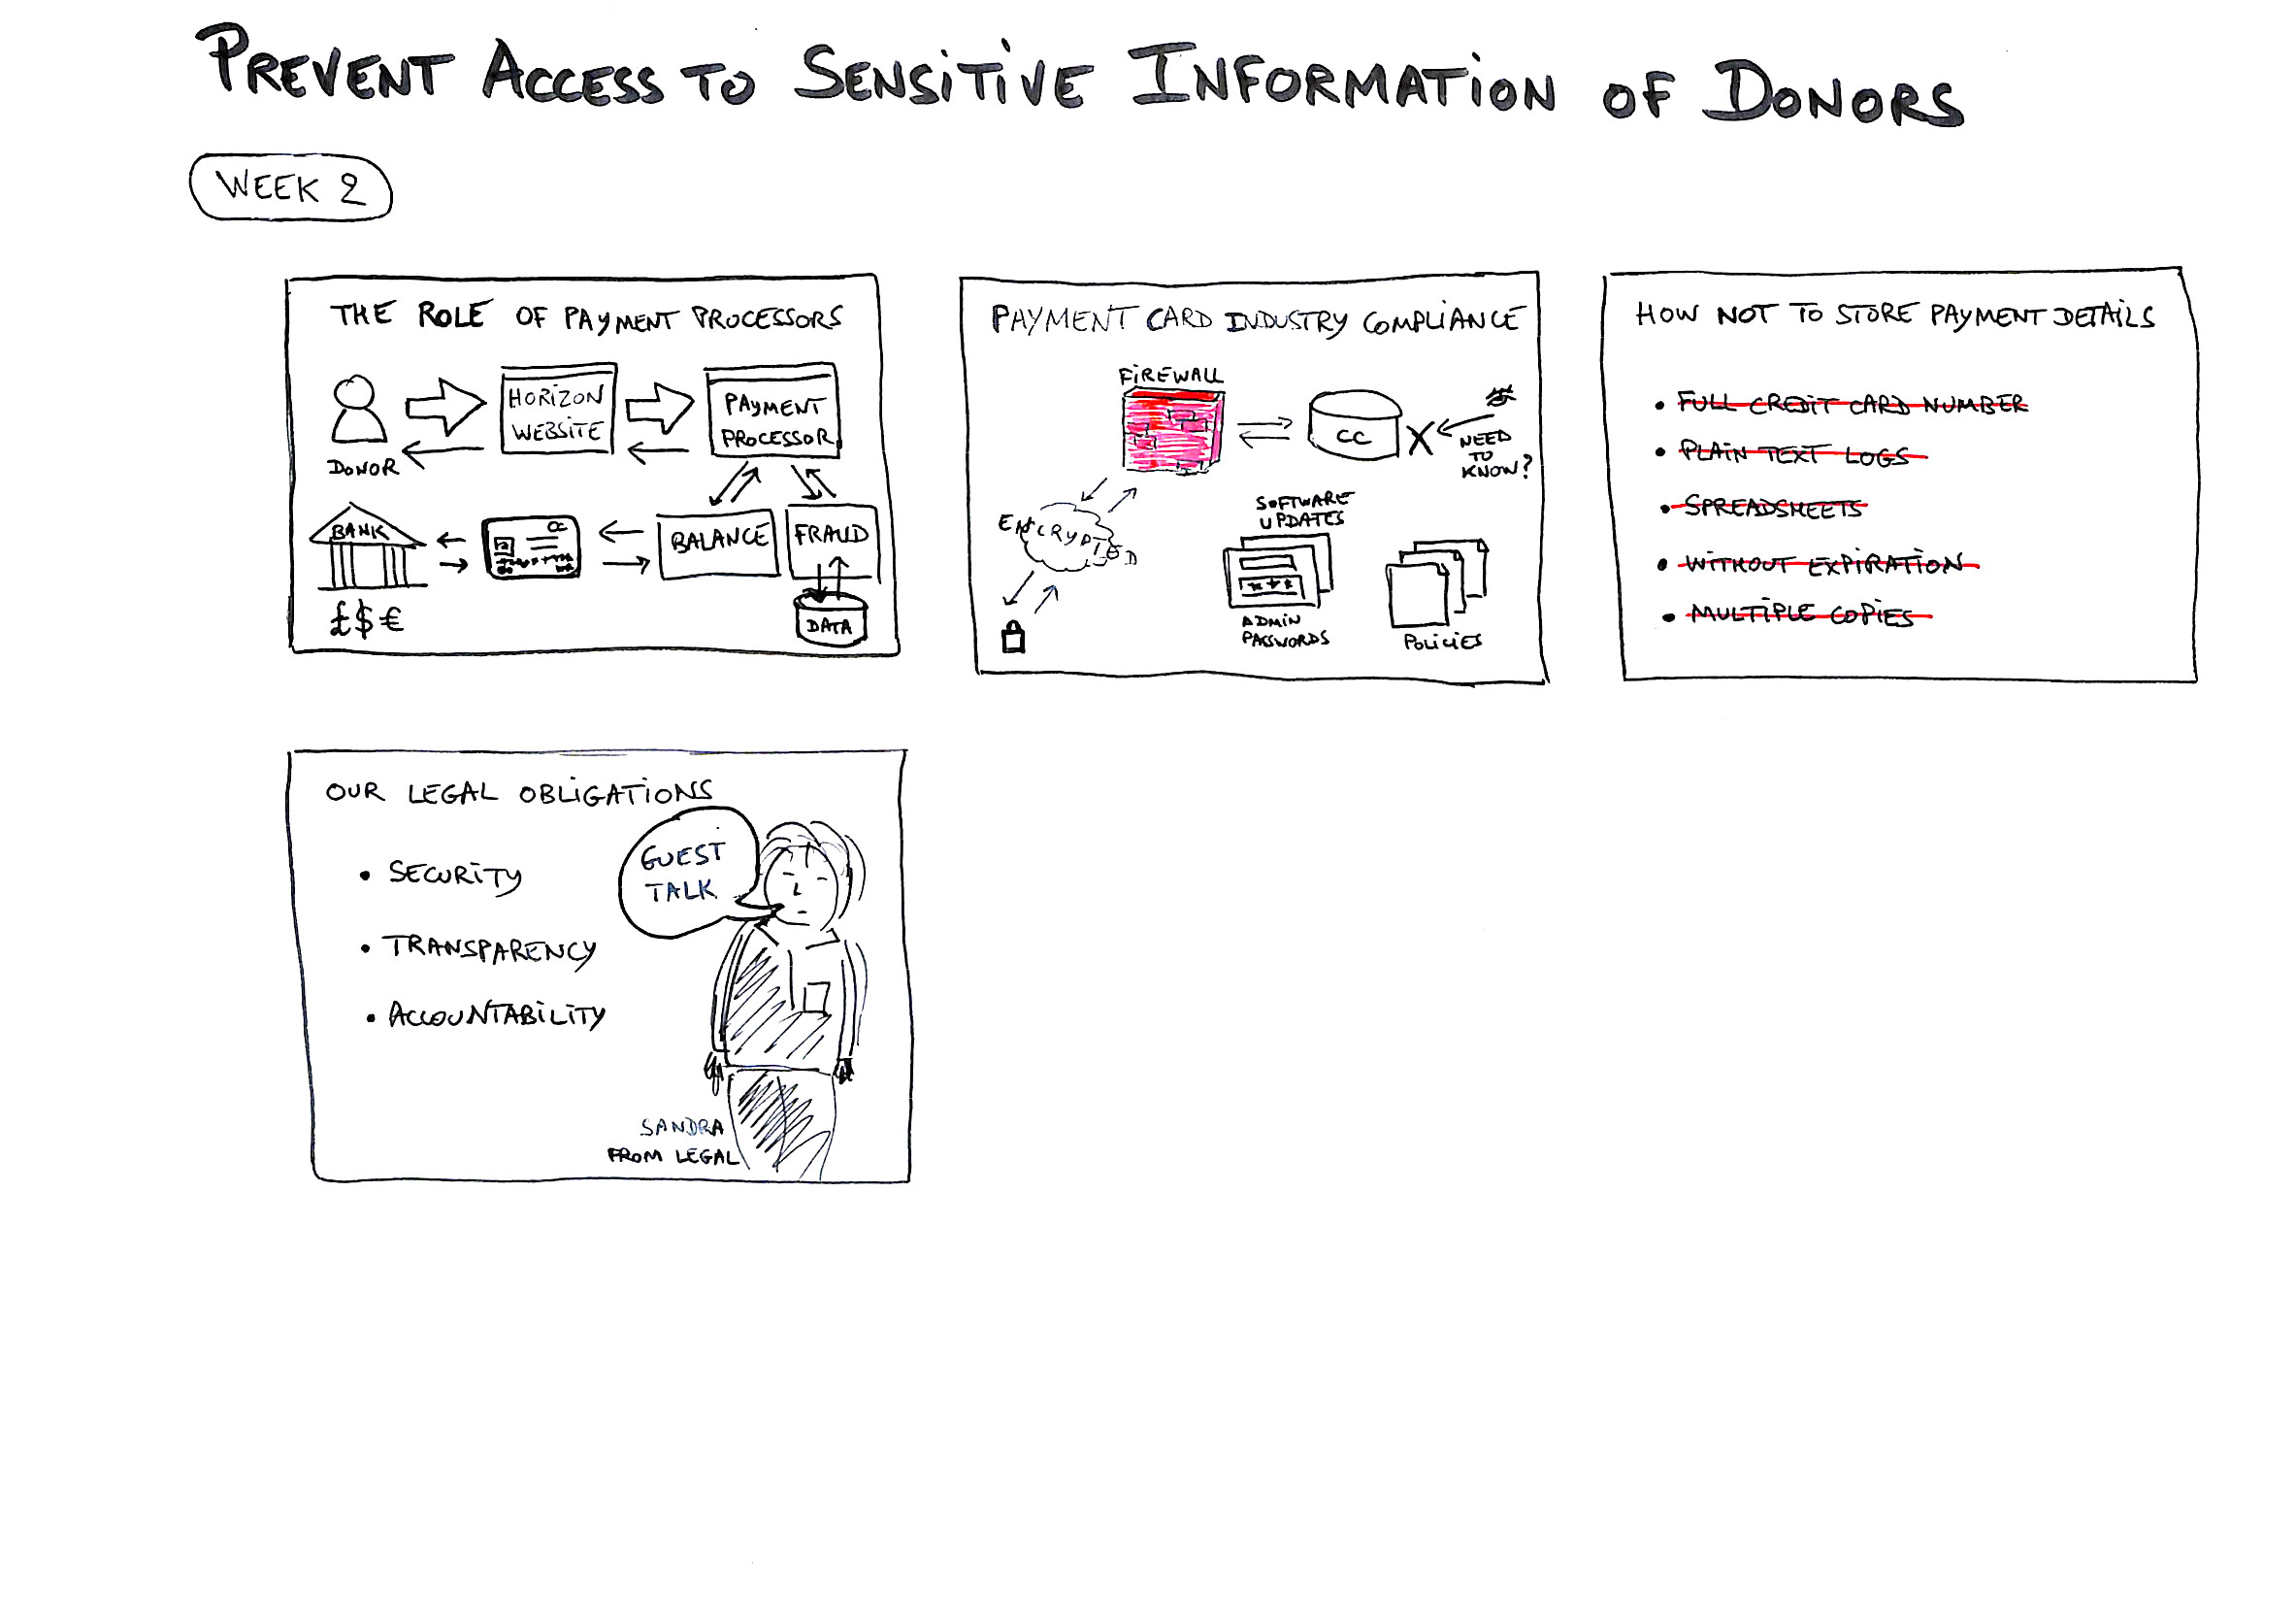 PREVENT ACCESS TO SENSITIVE INFORMATION OF DONORS
WEEK 2
THE ROLE OF PAYMENT PROCESSORS
DONOR
HORIZON
WEBSITE
PAYMENT
PROCESSOR
BANK
£$€
CC
BALANCE
FRAUD
DATA
PAYMENT CARD INDUSTRY COMPLIANCE
FIREWALL
CC
X
NEED
TO
KNOW?
ENCRYPTED
SOFTWARE
UPDATES
***
ADMIN
PASSWORDS
POLICIES
HOW NOT TO STORE PAYMENT DETAILS
• FULL CREDIT CARD NUMBER
• PLAIN TEXT LOGS
• SPREADSHEETS
• WITHOUT EXPIRATION
• MULTIPLE COPIES
OUR LEGAL OBLIGATIONS
• SECURITY
• TRANSPARENCY
• ACCOUNTABILITY
GUEST
TALK
SANDRA
FROM LEGAL